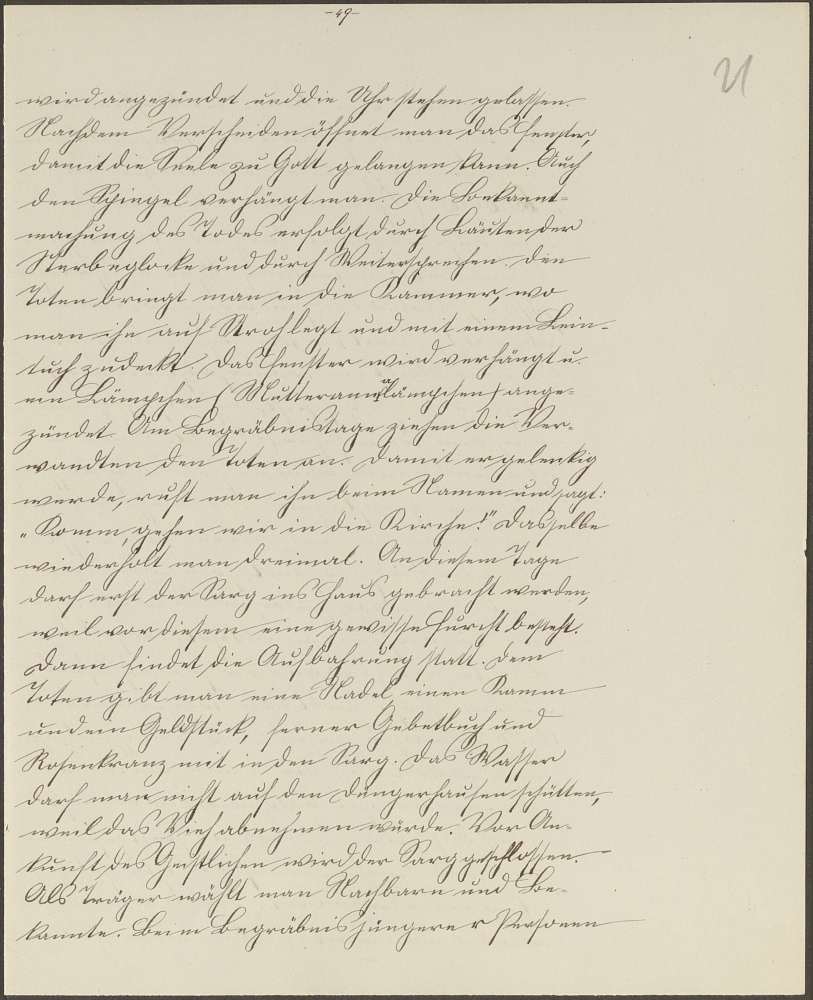 -49-
21
wird angezündet und die Uhr stehen gelassen.
Nachdem Verscheiden öffnet man das Fenster,
damit die Seele zu Gott gelangen kann. Auch
den Spiegel verhängt man. Die Bekannt-
machung des Todes erfolgt durch Läuten der
Sterbeglocke und durch Weitersprechen. Den
Toten bringt man in die Kammer, wo
man ihn auf Stroh legt und mit einem Lein-
tuch zudeckt. Das Fenster wird verhängt u.
ein Lämpchen (Mutter lämpchen) ange-
zündet. Am Begräbnistage ziehen die Ver-
wandten den Toten an. Damit er gelenkig
werde, ruft man ihn beim Namen und sagt:
"Komm, gehen wir in die Kirche!" Dasselbe
wiederholt man dreimal. An diesem Tage
darf erst der Sarg ins Haus gebracht werden,
weil vor diesem eine gewisse Furcht besteht.
Dann findet die Aufbahrung statt. Dem
Toten gibt man eine Nadel, einen Kamm
und ein Geldstück, ferner Gebetbuch und
Rosenkranz mit in den Sarg. Das Wasser
darf man nicht auf den Düngerhaufen schütten,
weil das Vieh abnehmen würde. Vor An-
kunft des Geistlichen wird der Sarg geschlossen.
Als Träger wählt man Nachbarn und Be-
kannte. Beim Begräbnis jüngerer Personen